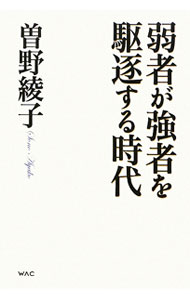 弱者が強者を
駆逐する時代
曽野綾子
Sono Ayako
WAC